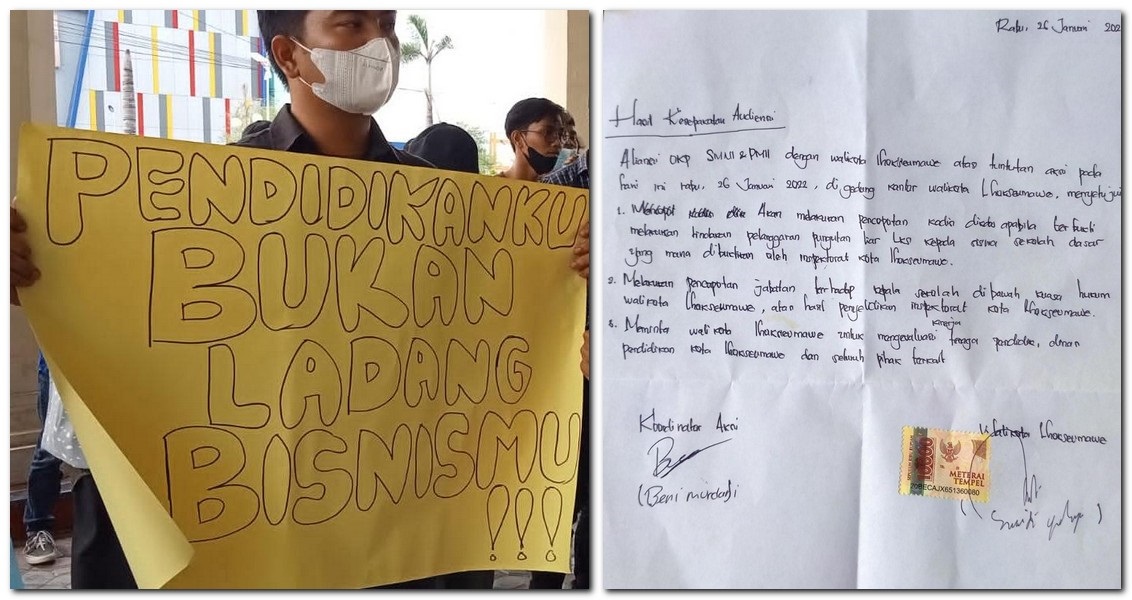 PENDIDIKANKU
BUKAN
LADANG
BISNISMU
!!!
Rabu, 26 Januari 202
Hasil Kesepakatan Audiensi
Aliansi OKP SMNI & PMII dengan walikota lhokseumawe atas tuntutan aksi pada
hari ini rabu, 26 Januari 2022, di gedung kantor walikota Lhokseumawe, menyetujui
1. Akan melakukan pencopotan kadis apabila terbukti
melakukan tindakan pelanggaran pungutan liar LKS kepada siswa sekolah dasar
yang mana dibuktikan oleh inspektorat kota lhokseumawe.
2. Melakukan pencopotan jabatan terhadap kepala sekolah dibawah kuasa hukum
walikota lhokseumawe, atas hasil penyelidikan inspektorat kota lhokseumawe.
3. Meminta walikota lhokseumawe untuk mengevaluasi kinerja tenaga pendidik, dinas
pendidikan kota lhokseumawe dan seluruh pihak terkait
Koordinator Aksi
Walikota lhokseumawe
10000
METERAI
TEMPEL
20BECAJX651360060
(Beni murdadi